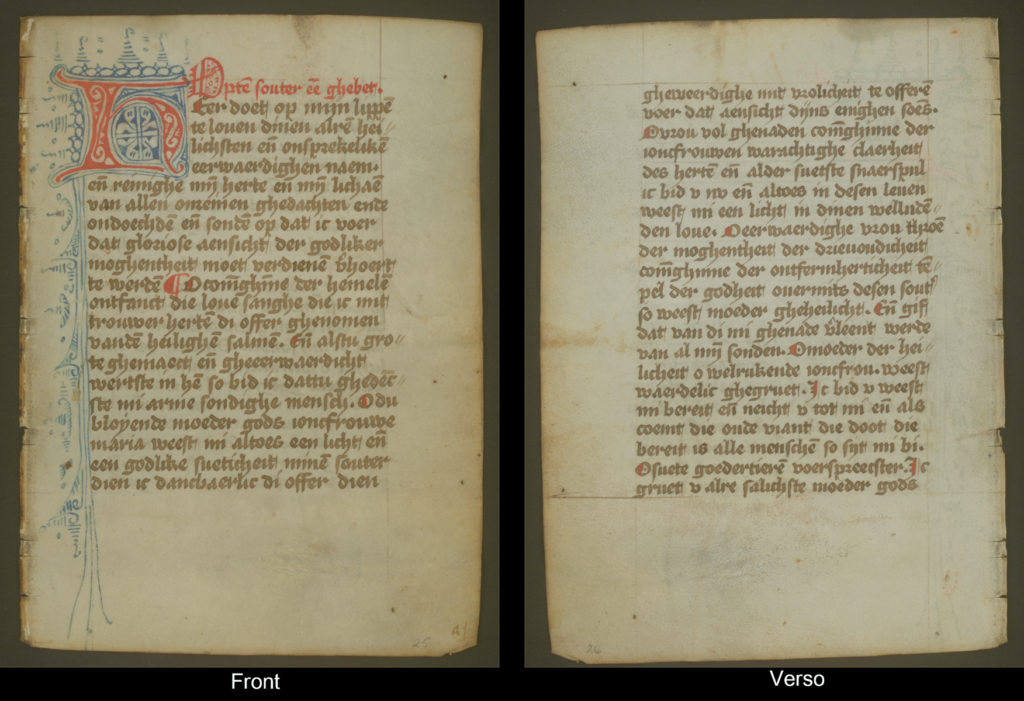 Optē souter eē ghebet.
Heer doet op mijn lippē
te louen dinen alrē hei〃
lichsten eñ onsprekelikē
eerwaerdighen naem.
eñ reinighe mȳ herte eñ mȳ lichaē
van allen omeinen ghedachten ende
ondoechdē eñ sondē op dat ic voer
dat gloriose aensicht der godliker
moghentheit moet verdienē v̄hoert
te werdē ¶ O coni͞ghinne der hemelē
ontfanct die loue sanghe die ic mit
trouwer hertē di offer ghenomen
vandē heilighē salmē. Eñ alstu gro〃
te ghemaect eñ gheeerwaerdicht
wertste in hē so bid ic dattu ghedēc〃
ste mi arme sondighe mensch. O du
bloyende moeder gods ioncfrouwe
maria weest mi altoes een licht eñ
een godlike sueticheit minē souter
dien ic dancbaerlic di offer dien
gheweerdighe mit vrolicheit te offerē
voer dat aensicht dijns enighen soēs.
O vrou vol ghenaden coni͞ghinne der
ioncfrouwen warachtighe claerheit
des hertē eñ alder suetste snaerspul
ic bid v nv eñ altoes in desen leuen
weest mi een licht in dinen wellndē〃
den loue. O eerwaerdighe vrou throē
der moghentheit der drieuondicheit
coni͞ghinne der ontfermherticheit tē〃
pel der godheit ouermits desen sout͛
so weest moeder gheheilicht. Eñ gif
dat van di mi ghenade v̄leent werde
van al mȳ sonden. O moeder der hei〃
licheit o welrukende ioncfrou. weest
waerdelic ghegruet. Ic bid v weest
mi bereit eñ neicht v tot mi eñ als
coemt die oude viant die doot die
bereit is alle menschē so sijt mi bi.
O suete goedertierē voerspreecster. Ic
gruet v alre salichste moeder gods
25
26
Front
Verso